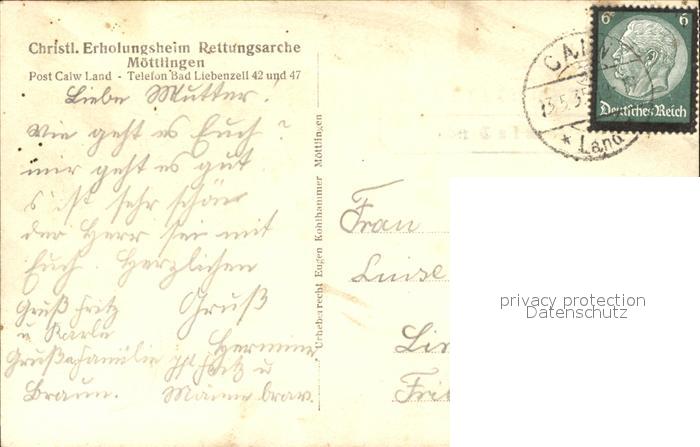 Christl. Erholungsheim Rettungsarche
Möttlingen
Post Calw Land - Telefon Bad Liebenzell 42 und 47
Liebe Mutter!
Wie geht es Euch?
mir geht es gut
s ist sehr schön
der Herr sei mit
Euch. Herzlichen
Gruß
Hermine
Gruß Fritz
u Karle
Gruß a Familie
Braun.
Urheberrecht Eugen Kohlhammer Möttlingen
6 6
Deutsches Reich
CALW
13.5.35
* Land
Frau
Luise
privacy protection
Datenschutz